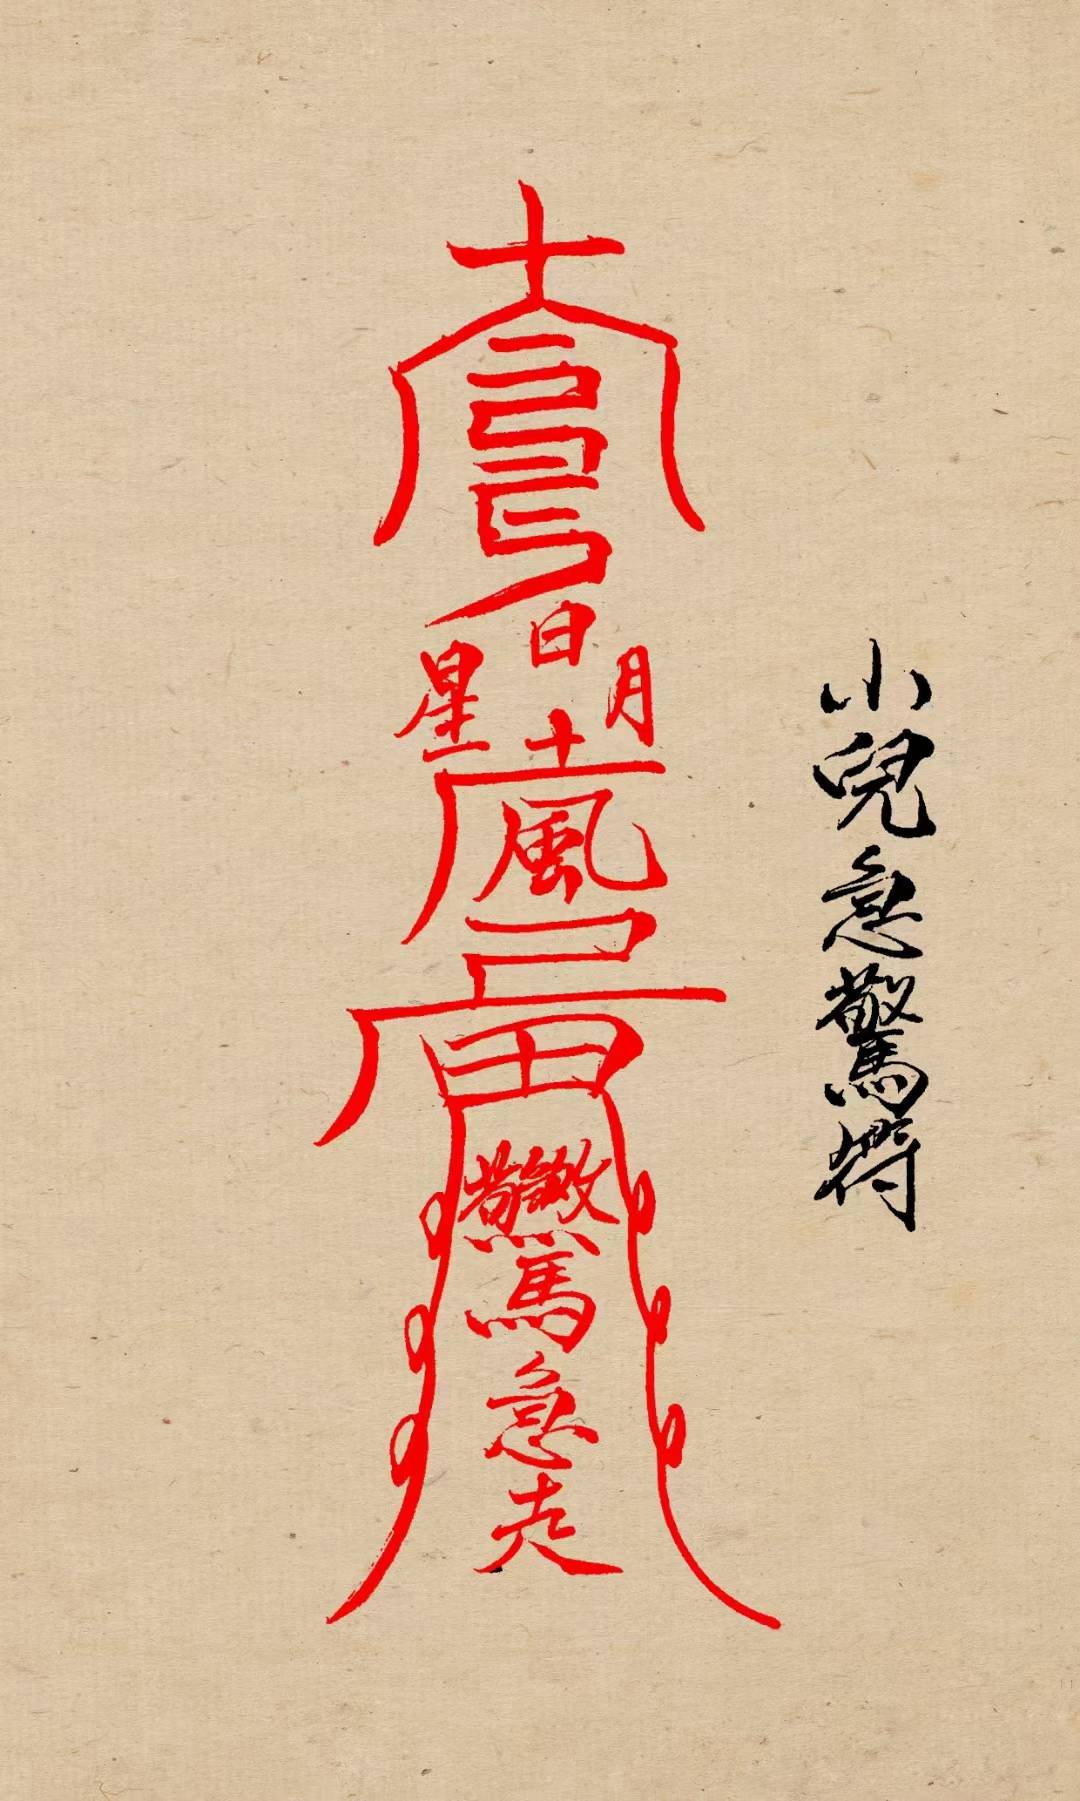 小兒急驚符
日
星 月
風
田
驚
急
走